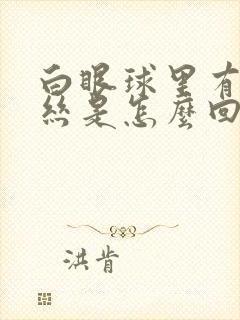 白眼球里有
丝是怎麼回
洪肯